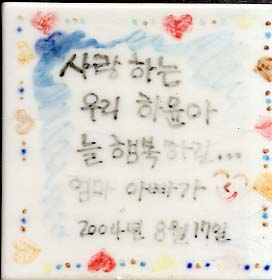 사랑하는
우리 하윤아
늘 행복하렴...
엄마 아빠가
2004년 8월 17일